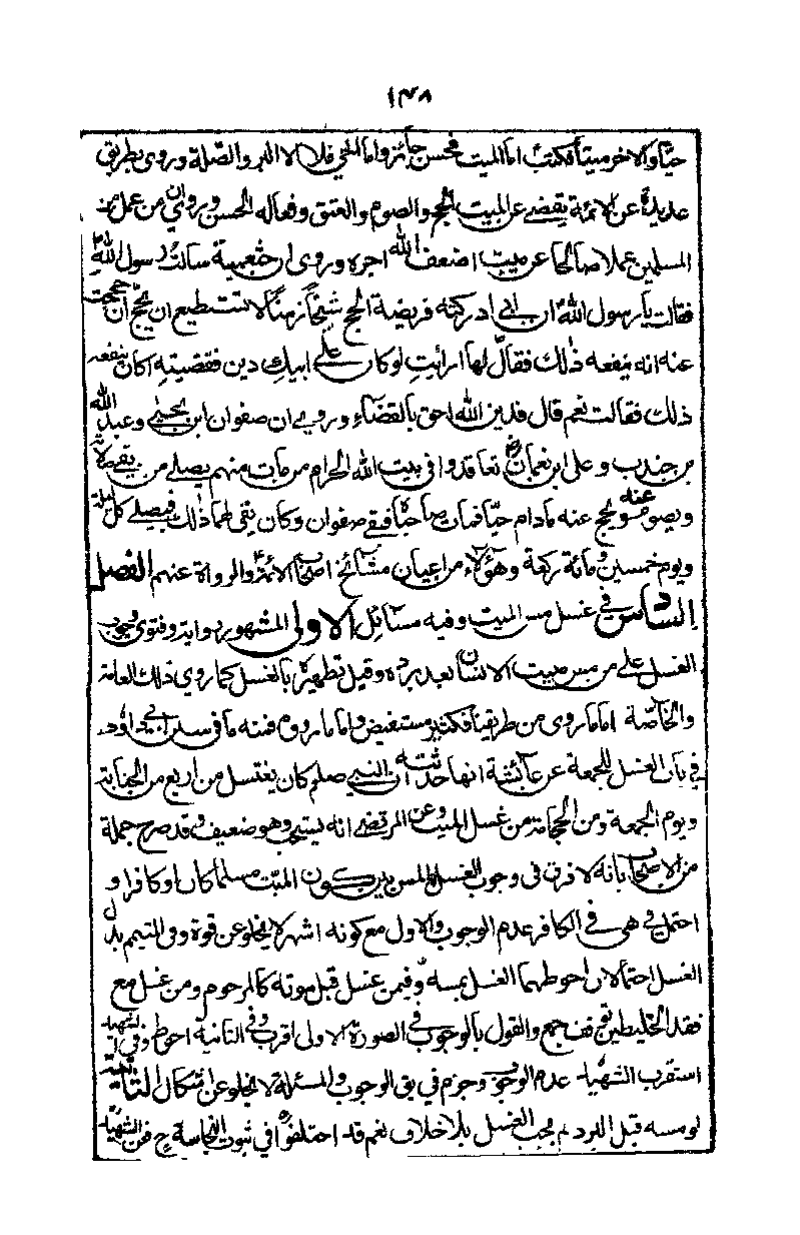 ١٤٨
حيّا والآخر ميتا فكتب اما الميت فحسن جائز واما الحي فلا الا البر والصّلة وروى بطريق
عديدة عن الائمة يقضى عن الميت الحج والصوم والعتق وفعاله الحسن وروى ان من عمل من
المسلمين عملا صالحا عن ميت اضعف الله اجره وروى ان خثعمية سالت رسول الله
فقالت يا رسول الله ان ابى ادركته فريضة الحج شيخا زمنا لا تستطيع ان يحج ان حججت
عنه انه ينفعه ذلك فقال لها ارايت لو كان على ابيك دين فقضيته اكان ينفعه
ذلك فقالت نعم قال فدين الله احق بالقضاء وروى ان صفوان ابن يحيى وعبد الله
بن جندب وعلى ابن نعمان تعاقدوا فى بيت الله الحرام من مات منهم يصلى من بقى صلاته
ويصوم عنه ويحج عنه مادام حيّا فمات صاحباه فبقى صفوان وكان يفى لهما ذلك فيصلى كل ليلة
ويوم خمسين ومائة ركعة وهؤلاء من اعيان مشائخ اصحاب الائمة والرواة عنهم الفصل
السادس فى غسل مس الميت وفيه مسائل الاولى المشهور رواية وفتوى وجوب
الغسل على من مس ميت الانسان بعد برده وقبل تطهيره بالغسل كما روى ذلك العامة
والخاصّة اما ما روى من طريقنا فكثير مستفيض واما ما رووه فمنه ما فى سنن ابى داود
فى باب الغسل للجمعة عن عائشة انها حدثته ان النبى صلعم كان يغتسل من اربع من الجنابة
ويوم الجمعة ومن الحجامة ومن غسل الميت وعن المرتضى انه يستحب وهو ضعيف وقد صرح جملة
من الاصحاب بانه لا فرق فى وجوب الغسل للمس بين كون الميّت مسلما كان او كافرا و
احتمل فى هى فى الكافر عدم الوجوب والاول مع كونه اشهر لا يخلو عن قوة وفى المتيمم بدل
الغسل احتمالان احوطهما الغسل بمسه وفيمن غسل قبل موته كالمرحوم ومن غسل مع
فقد الخليطين فمن جمع والقول بالوجوب فى الصورة الاولى اقرب وفى الثانية احوط وفى الشهيد
استقرب الشهيد عدم الوجوب وجزم فى بق الوجوب والمسئلة لا تخلو عن اشكال الثانية
لو مسه قبل البرد لم يجب الغسل بلا خلاف نعم قد اختلفوا فى ثبوت النجاسة ح فعن الشهيد